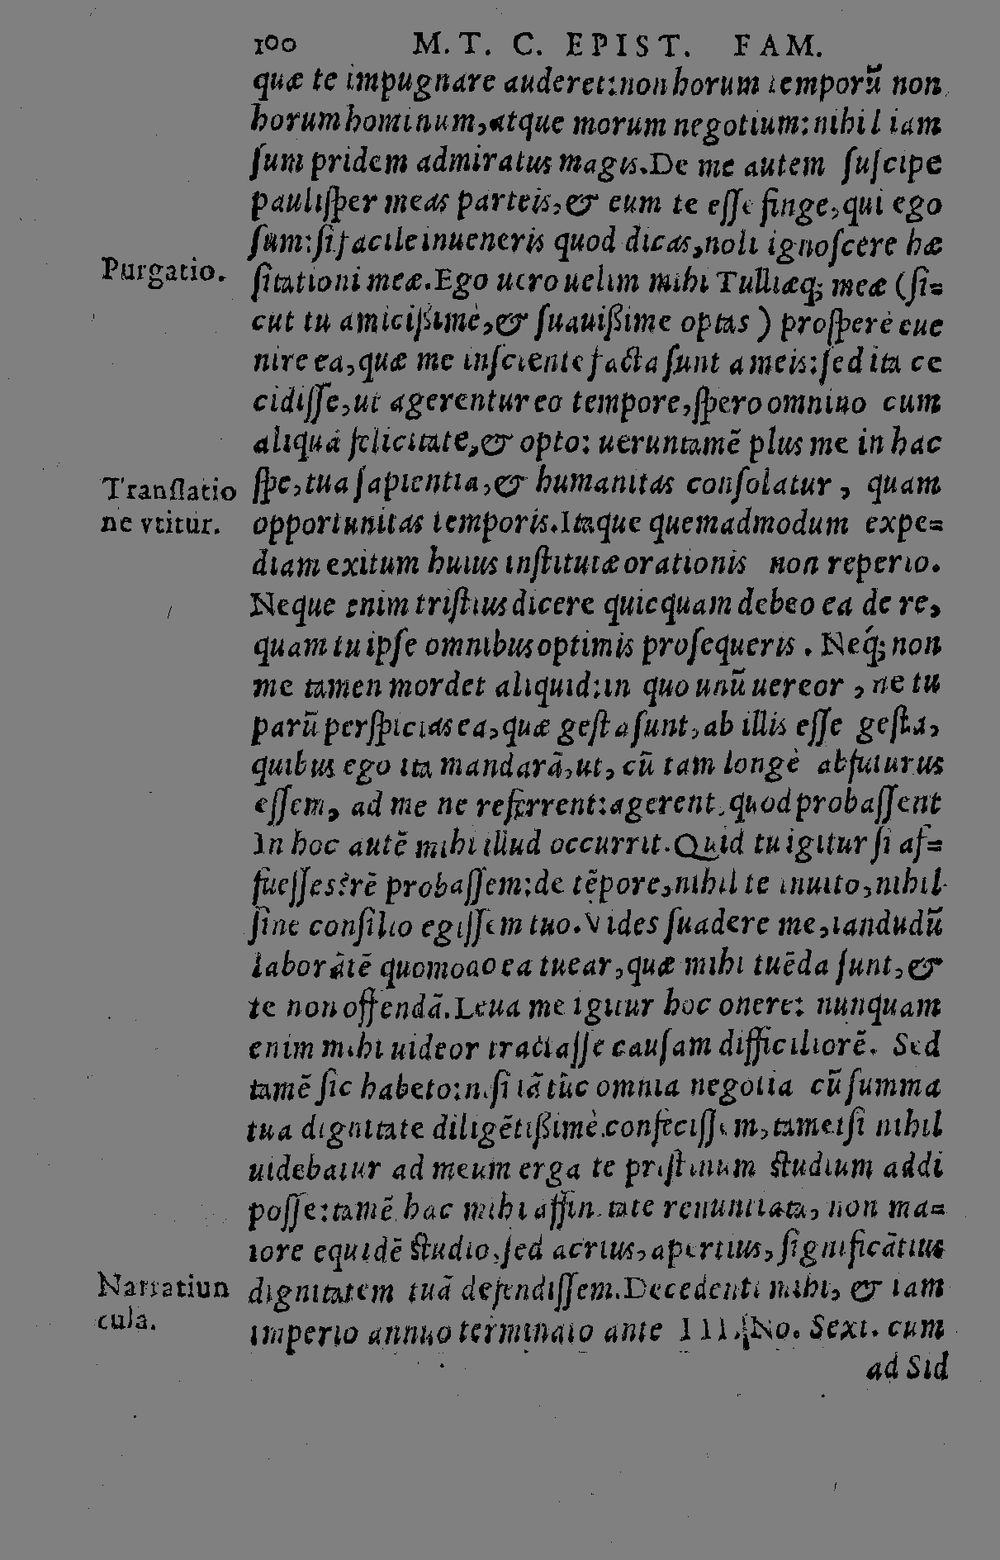 100 M. T. C. EPIST. FAM.
quæ te impugnare auderet: non horum temporū non
horum hominum, atque morum negotium: nihil iam
ſum pridem admiratus magis. De me autem ſuſcipe
pauliſper meas parteis, & eum te eſſe finge, qui ego
ſum: ſi facile inueneris quod dicas, noli ignoſcere hæ
Purgatio.
ſitationi meæ. Ego uero uelim mihi Tulliæq; meæ (ſi=
cut tu amicißimè, & ſuauißime optas) proſperè eue
nire ea, quæ me inſciente facta ſunt a meis: ſed ita ce
cidiſſe, ut agerentur eo tempore, ſpero omnino cum
aliquá felicitate, & opto: ueruntamē plus me in hac
Tranſlatio
ne vtitur.
ſpe, tua ſapientia, & humanitas conſolatur, quam
opportunitas temporis. Itaque quemadmodum expe=
diam exitum huius inſtitutæ orationis non reperio.
Neque enim triſtius dicere quicquam debeo ea de re,
quam tu ipſe omnibus optimis proſequeris. Neq́; non
me tamen mordet aliquid: in quo unū uereor, ne tu
parū perſpicias ea, quæ geſta ſunt, ab illis eſſe geſta,
quibus ego ita mandarā, ut, cū tam longè abfuturus
eſſem, ad me ne referrent: agerent quod probaſſent
In hoc autē mihi illud occurrit. Quid tu igitur ſi af=
fueſſes? rē probaſſem; de tēpore, nihil te inuito, nihil
ſine conſilio egiſſem tuo. Vides ſuadere me, iandudū
laborātē quomodo ea tuear, quæ mihi tuēda ſunt, &
te non offendā. Leua me igitur hoc onere: nunquam
enim mihi uideor tractaſſe cauſam difficiliorē. Sed
tamē ſic habeto: niſi iā tūc omnia negotia cū ſumma
tua dignitate diligētißimè confeciſſem, tametſi nihil
uidebatur ad meum erga te priſtinum ſtudium addi
poſſe: tamē hac mihi affinitate renuntiata, non ma=
iore equidē ſtudio, ſed acrius, apertius, ſignificātius
Narratiun
cula.
dignitatem tuā defendiſſem. Decedenti mihi, & iam
imperio annuo terminato ante III. No. Sext. cum
ad Sid